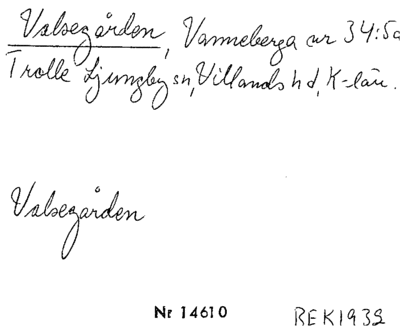 Valsegården, Vanneberga nr 34:5a
Trolle Ljungby sn, Villands hd, K-län.
Valsegården
Nr 14610 REK1932